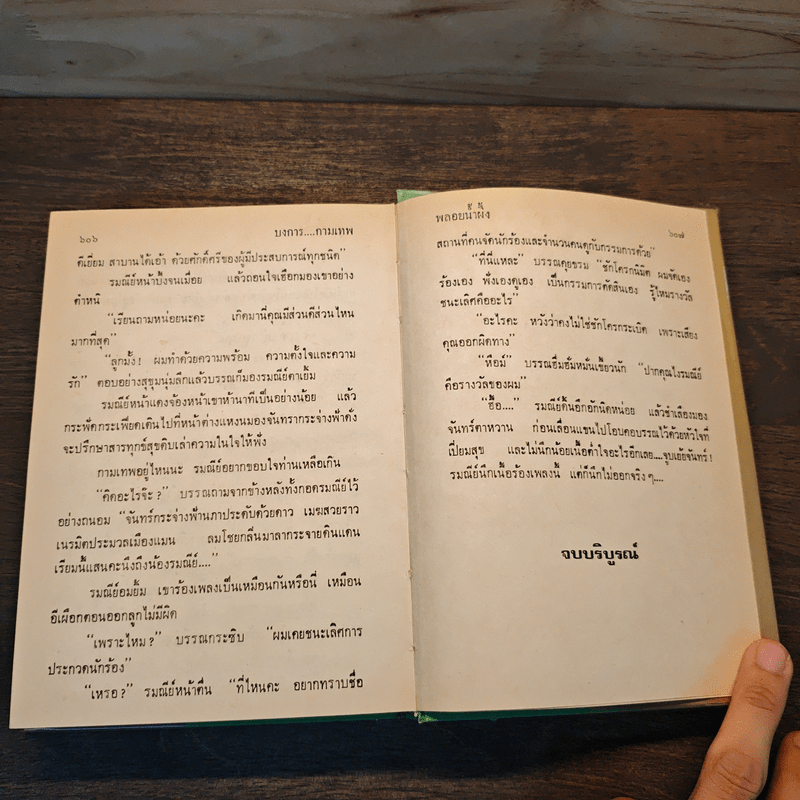 ๖๐๖ บงการ....กามเทพ
ดีเยี่ยม สาบานได้เอ้า ด้วยศักดิ์ศรีของผู้มีประสบการณ์ทุกชนิด”
รมณีย์หน้าบึ้งจนเมื่อย แล้วถอนใจเฮือกมองเขาอย่าง
ตำหนิ
“เรียนถามหน่อยนะคะ เกิดมานี่คุณมีส่วนดีส่วนไหน
มากที่สุด”
“ลูกมั้ง! ผมทำด้วยความพร้อม ความตั้งใจและความ
รัก” ตอบอย่างสุขุมนุ่มลึกแล้วบรรณก็มองรมณีย์ตาเยิ้ม
รมณีย์หน้าแดงจ้องหน้าเขาห้านาทีเป็นอย่างน้อย แล้ว
กระฟัดกระเฟียดเดินไปที่หน้าต่างแหงนมองจันทรากระจ่างฟ้าดั่ง
จะปรึกษาสารทุกข์สุกดิบเล่าความในใจให้ฟัง
กามเทพอยู่ไหนนะ รมณีย์อยากขอบใจท่านเหลือเกิน
“คิดอะไรจ๊ะ?” บรรณถามจากข้างหลังทั้งกอดรมณีย์ไว้
อย่างถนอม “จันทร์กระจ่างฟ้านภาประดับด้วยดาว เมฆสวยราว
เนรมิตประมวลเมืองแมน ลมโชยกลิ่นมาลากระจายดินแดน
เรียมนี้แสนคะนึงถึงน้องรมณีย์....”
รมณีย์อมยิ้ม เขาร้องเพลงเป็นเหมือนกันหรือนี่ เหมือน
อีเผือกตอนออกลูกไม่มีผิด
“เพราะไหม?” บรรณกระซิบ “ผมเคยชนะเลิศการ
ประกวดนักร้อง”
“เหรอ?” รมณีย์หน้าตื่น “ที่ไหนคะ อยากทราบชื่อ
พลอยน้ำผึ้ง ๖๐๗
สถานที่คนจัดนักร้องและจำนวนคนดูกับกรรมการด้วย”
“ที่นี่แหละ” บรรณคุยธรรม “ชักโครกนิมิต ผมจัดเอง
ร้องเอง ฟังเองดูเอง เป็นกรรมการตัดสินเอง รู้ไหมรางวัล
ชนะเลิศคืออะไร”
“อะไรคะ หวังว่าคงไม่ใช่ชักโครกระเบิด เพราะเสียง
คุณออกผิดทาง”
“หือม์” บรรณฮึมฮั่มหมั่นเขี้ยวนัก “ปากคุณไงรมณีย์
คือรางวัลของผม”
“อื้อ....” รมณีย์ดิ้นอึกอักนิดหน่อย แล้วชำเลืองมอง
จันทร์ตาหวาน ก่อนเลื่อนแขนไปโอบคอบรรณไว้ด้วยหัวใจที่
เปี่ยมสุข และไม่นึกน้อยเนื้อต่ำใจอะไรอีกเลย....จูบเย้ยจันทร์!
รมณีย์นึกเนื้อร้องเพลงนี้ แต่ก็นึกไม่ออกจริงๆ....
จบบริบูรณ์